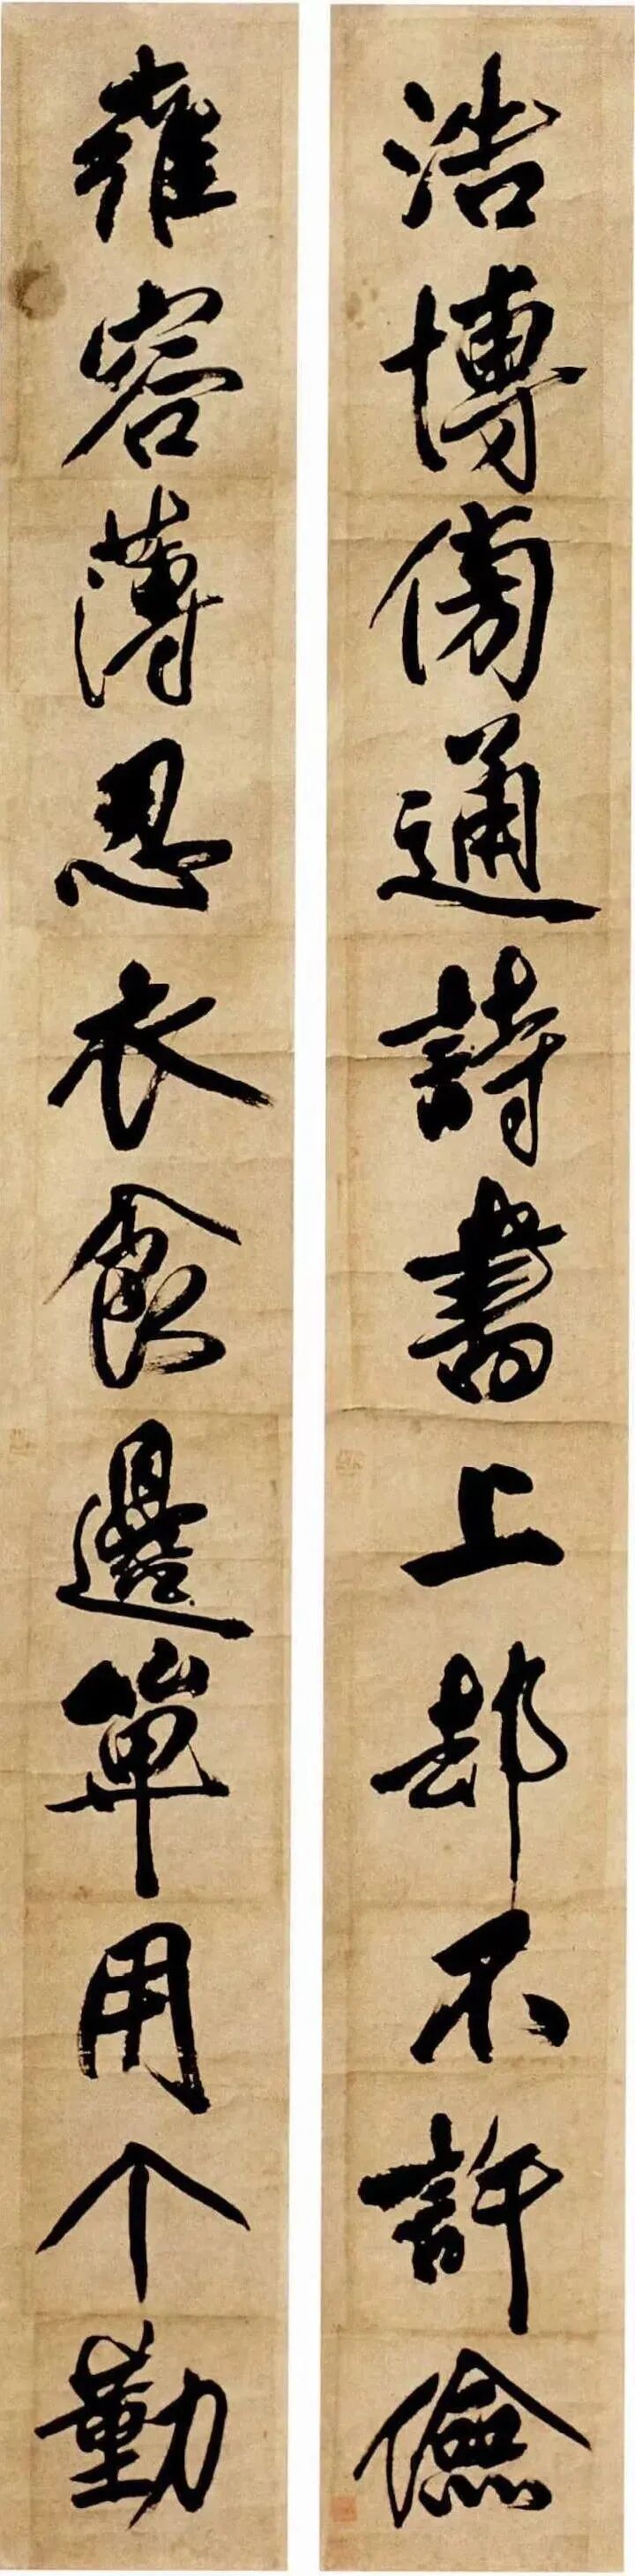 浩博傍通詩書上却不許儉
雍容薄忍衣食邊單用个勤